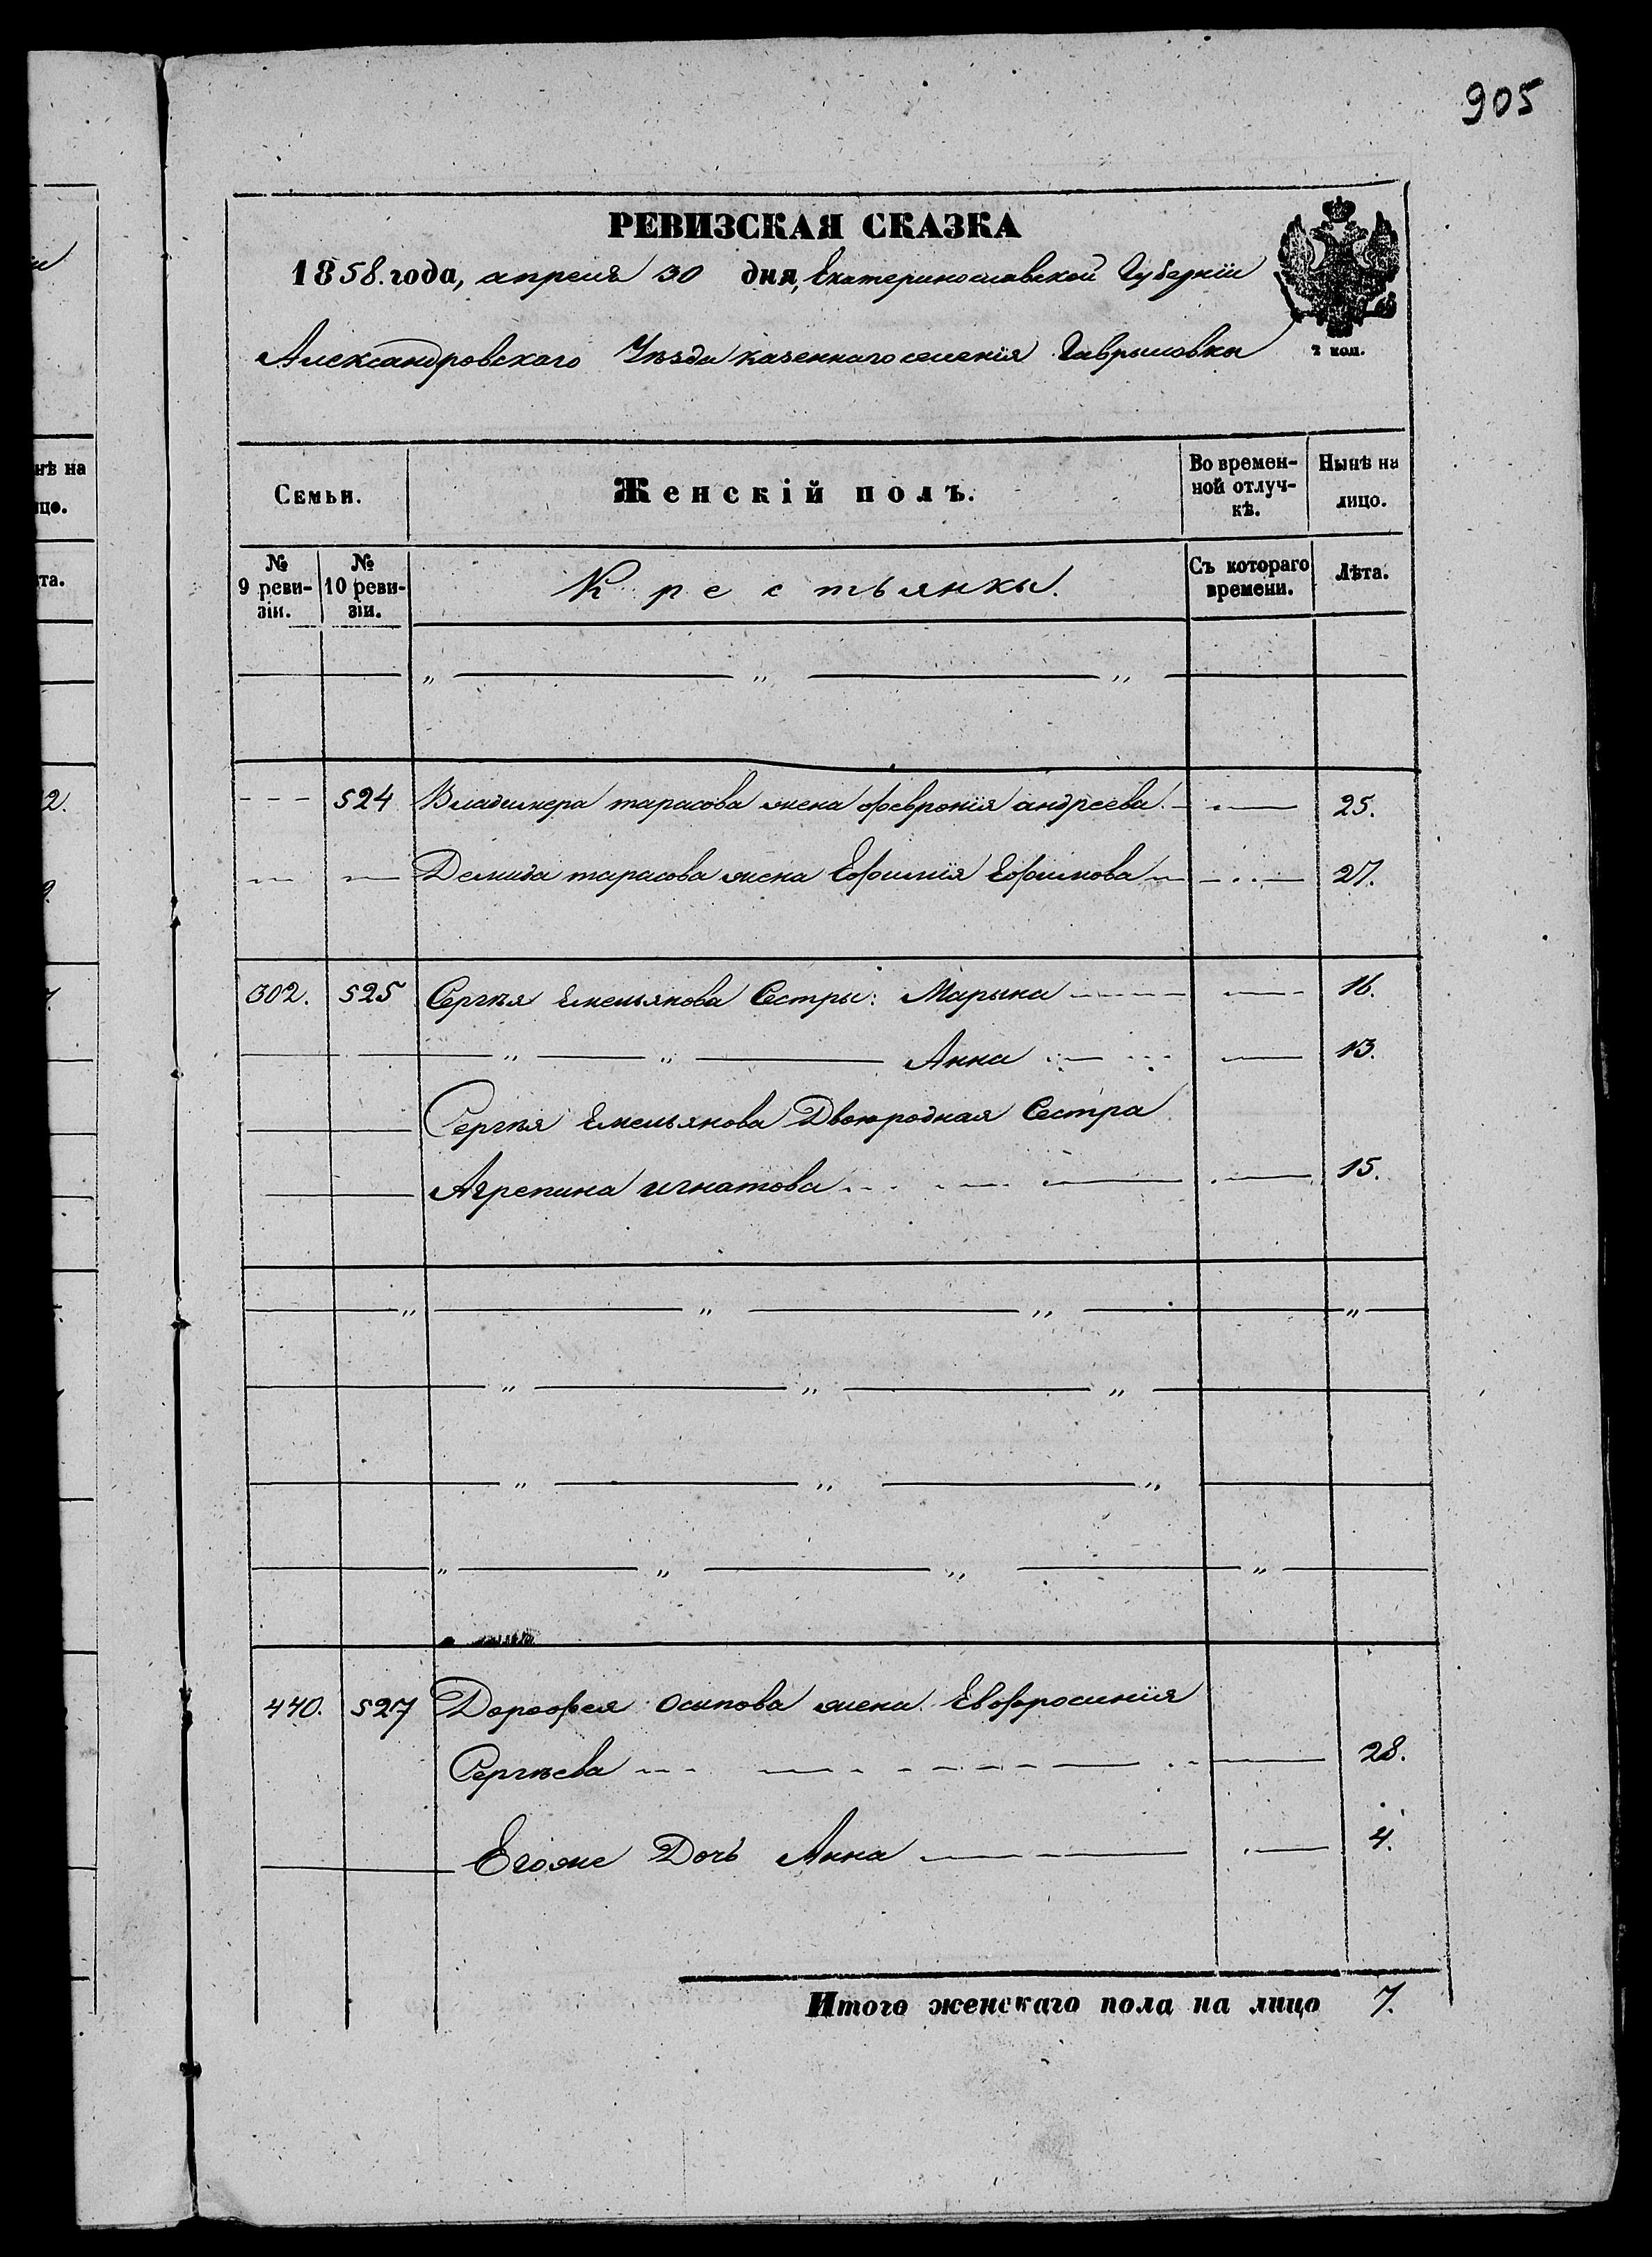 905
РЕВИЗСКАЯ СКАЗКА
1858. года, апреля 30 дня, Екатеринославской Губернiи
Александровскаго Уѣзда казеннаго селенiя Гаврыловки
2 коп.
нѣ на
цо.
та.
2.
Семьи.
Женскiй полъ.
Во времен-
ной отлуч-
кѣ.
Нынѣ на
лицо.
№
9 реви-
зiи.
№
10 реви-
зiи.
Крестьянки.
Съ котораго
времени.
Лѣта.
524 Владимера тарасова жена февронiя андреева 25.
Демида тарасова жена Ефимiя Ефимова 27.
302. 525 Сергѣя Емельянова Сестры: Марына 16.
Анна 13.
Сергѣя Емельянова Двоюродная Сестра
Агрепина игнатова 15.
440. 527 Дорофея Осипова жена Евфросинiя
Сергѣева 28.
Егоже Дочь Анна 4.
Итого женскаго пола на лицо 7.